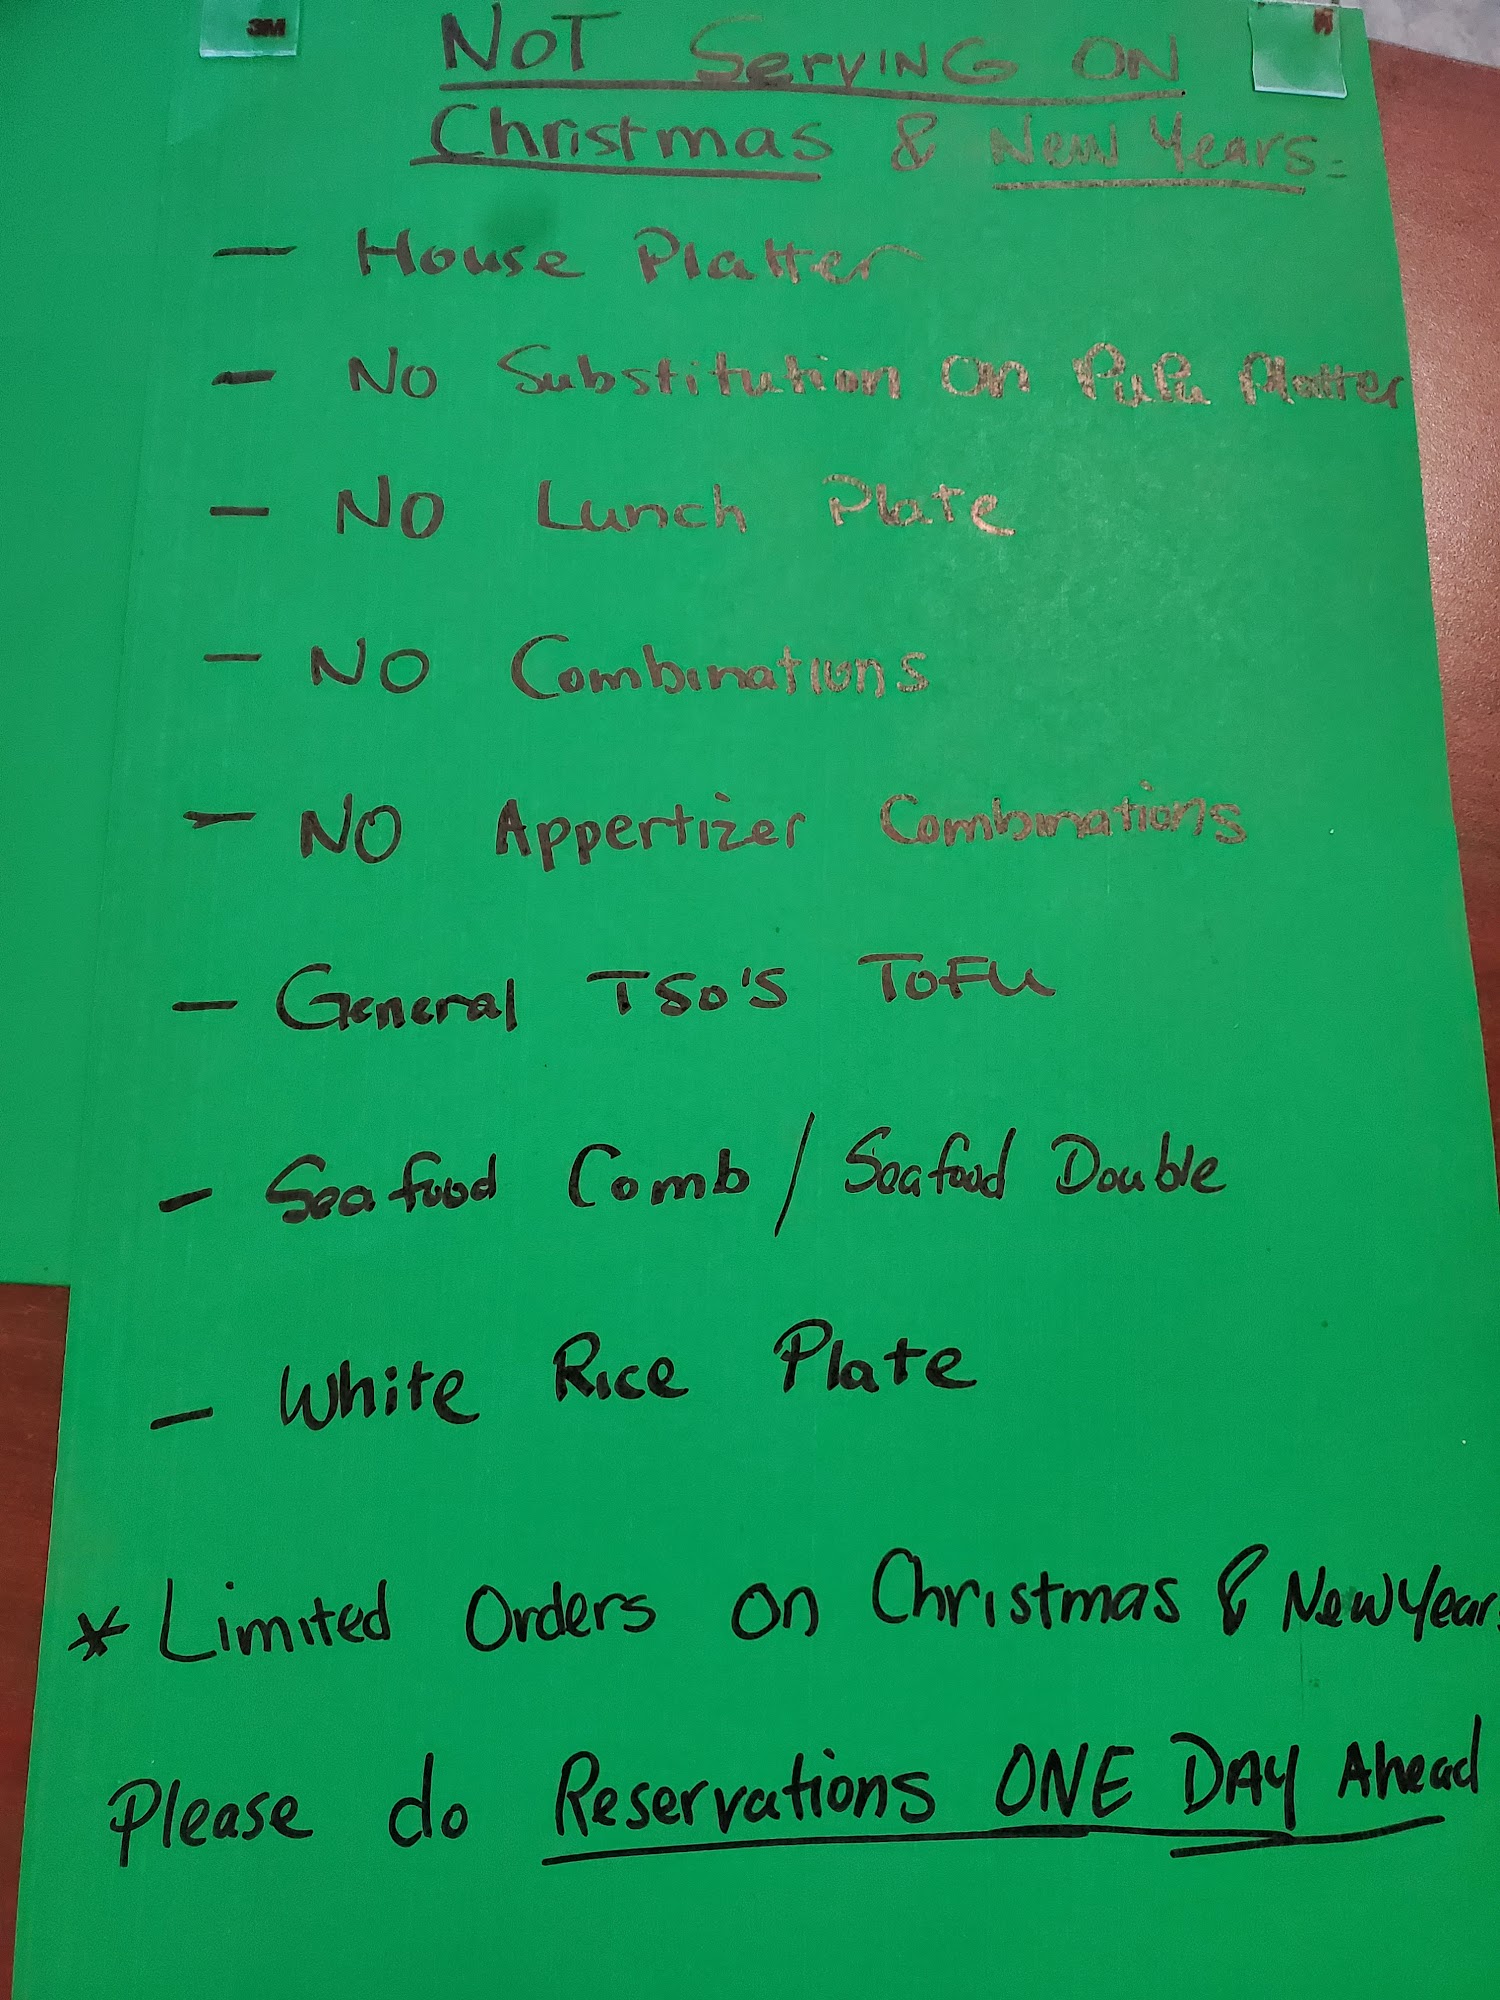 3M
NOT Serving ON
Christmas & New Years:
- House Platter
- NO Substitution On PuPu Platter
- NO Lunch Plate
- NO Combinations
- NO Appertizer Combinations
- General TSO'S TOFU
- Seafood Comb / Seafood Double
- White Rice Plate
* Limited Orders on Christmas & New Years
Please do Reservations ONE DAY Ahead